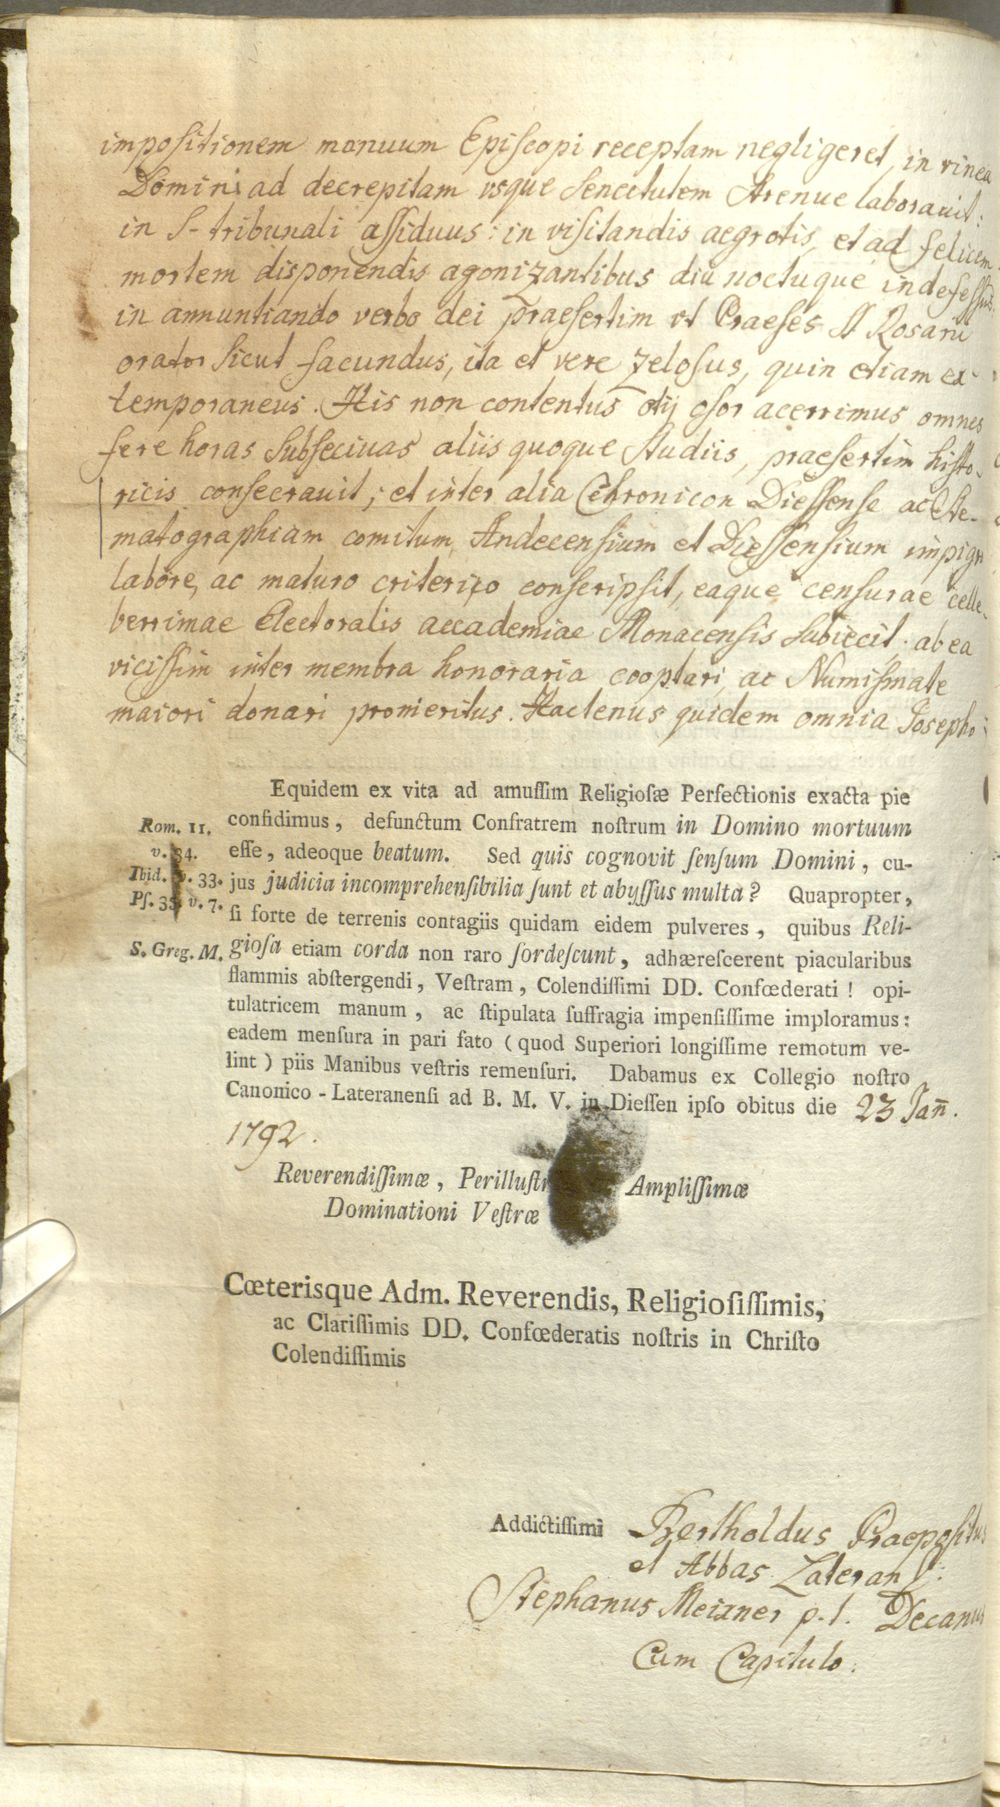 impositionem manuum Episcopi receptam negligeret, in vinea
Domini ad decrepitam vsque senectutem strenue laborauit:
in S- tribunali assiduus: in visitandis aegrotis, et ad felicem
mortem disponendis agonizantibus diu noctuque indefessus:
in annuntiando verbo dei praesertim vt Praeses SS Rosarii
orator sicut facundus, ita et vere zelosus, quin etiam ex-
temporaneus. His non contentus otij osor acerrimus omnes
fere horas subseciuas aliis quoque studiis, praesertim histo-
ricis consecrauit; et inter alia Chronicon Diessense ac Ste-
matographiam comitum Andecensium et Diessensium impigro
labore, ac maturo criterio conscripsit, eaque censurae cele-
berrimae Electoralis accademiae Monacensis subiecit. ab ea
vicissim inter membra honoraria cooptari, ac Numismate
maiori donari promeritus. Hactenus quidem omnia Josepho:
Equidem ex vita ad amuſſim Religioſæ Perfectionis exacta pie
Rom. 11. confidimus, defunctum Confratrem noſtrum in Domino mortuum
v. 34. eſſe, adeoque beatum. Sed quis cognovit ſenſum Domini, cu-
Ibid. v. 33. jus judicia incomprehenſibilia ſunt et abyſſus multa? Quapropter,
Pſ. 35. v. 7. ſi forte de terrenis contagiis quidam eidem pulveres, quibus Reli-
S. Greg. M. gioſa etiam corda non raro ſordeſcunt, adhæreſcerent piacularibus
flammis abſtergendi, Veſtram, Colendiſſimi DD. Confœderati! opi-
tulatricem manum, ac ſtipulata ſuffragia impenſiſſime imploramus:
eadem menſura in pari fato (quod Superiori longiſſime remotum ve-
lint) piis Manibus veſtris remenſuri. Dabamus ex Collegio noſtro
Canonico-Lateranenſi ad B. M. V. in Dieſſen ipſo obitus die 23 Jan̄.
1792.
Reverendiſſimæ, Perilluſtr Ampliſſimæ
Dominationi Veſtræ
Cœterisque Adm. Reverendis, Religioſiſſimis,
ac Clariſſimis DD. Confœderatis noſtris in Chriſto
Colendiſſimis
Addictiſſimi Bertholdus Praepositus
et Abbas Lateran
Stephanus Meixner p. t. Decanus
Cum Capitulo.